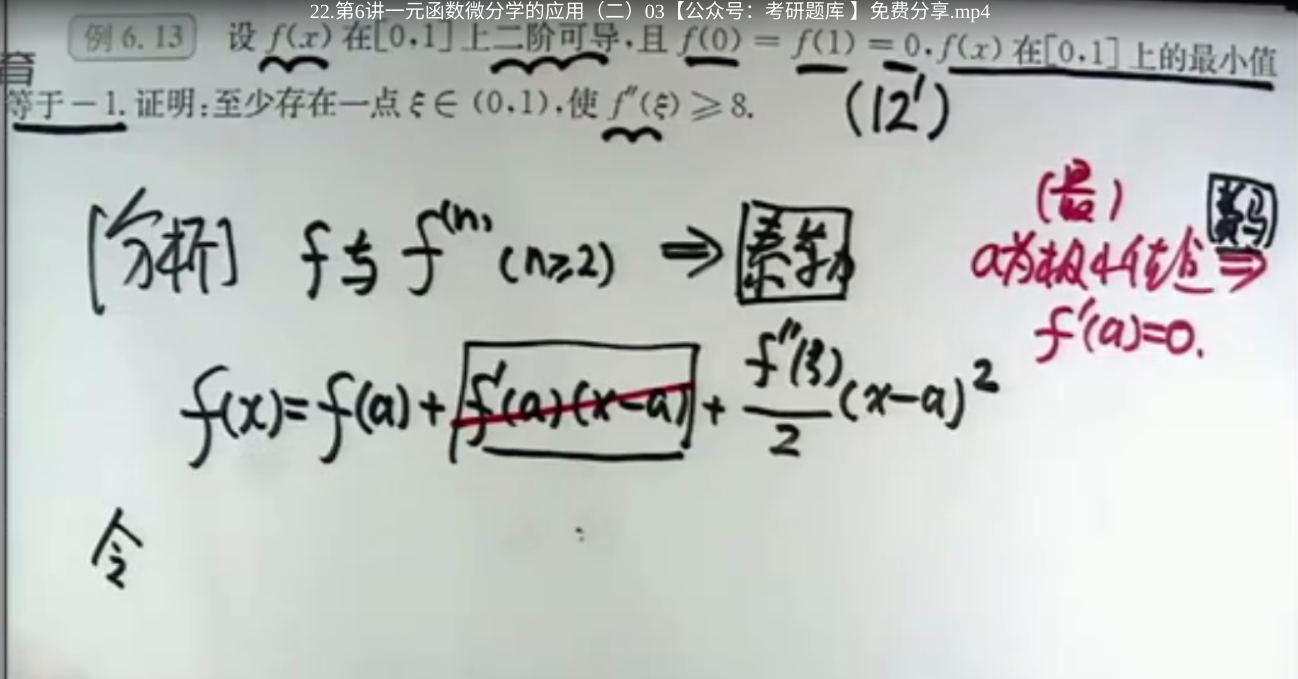 22.第6讲一元函数微分学的应用（二）03【公众号：考研题库 】免费分享.mp4
例 6.13 设 f(x) 在[0,1]上二阶可导,且 f(0) = f(1) = 0,f(x) 在[0,1] 上的最小值
育
等于-1.证明:至少存在一点 ξ∈(0,1),使 f″(ξ)≥8.
(12′)
[分析] f与f⁽ⁿ⁾(n≥2) ⇒ 泰勒
(最)
a为极小值点 费马 ⇒
f′(a)=0.
f(x)=f(a)+f′(a)(x-a)+f″(ξ)/2(x-a)²
令